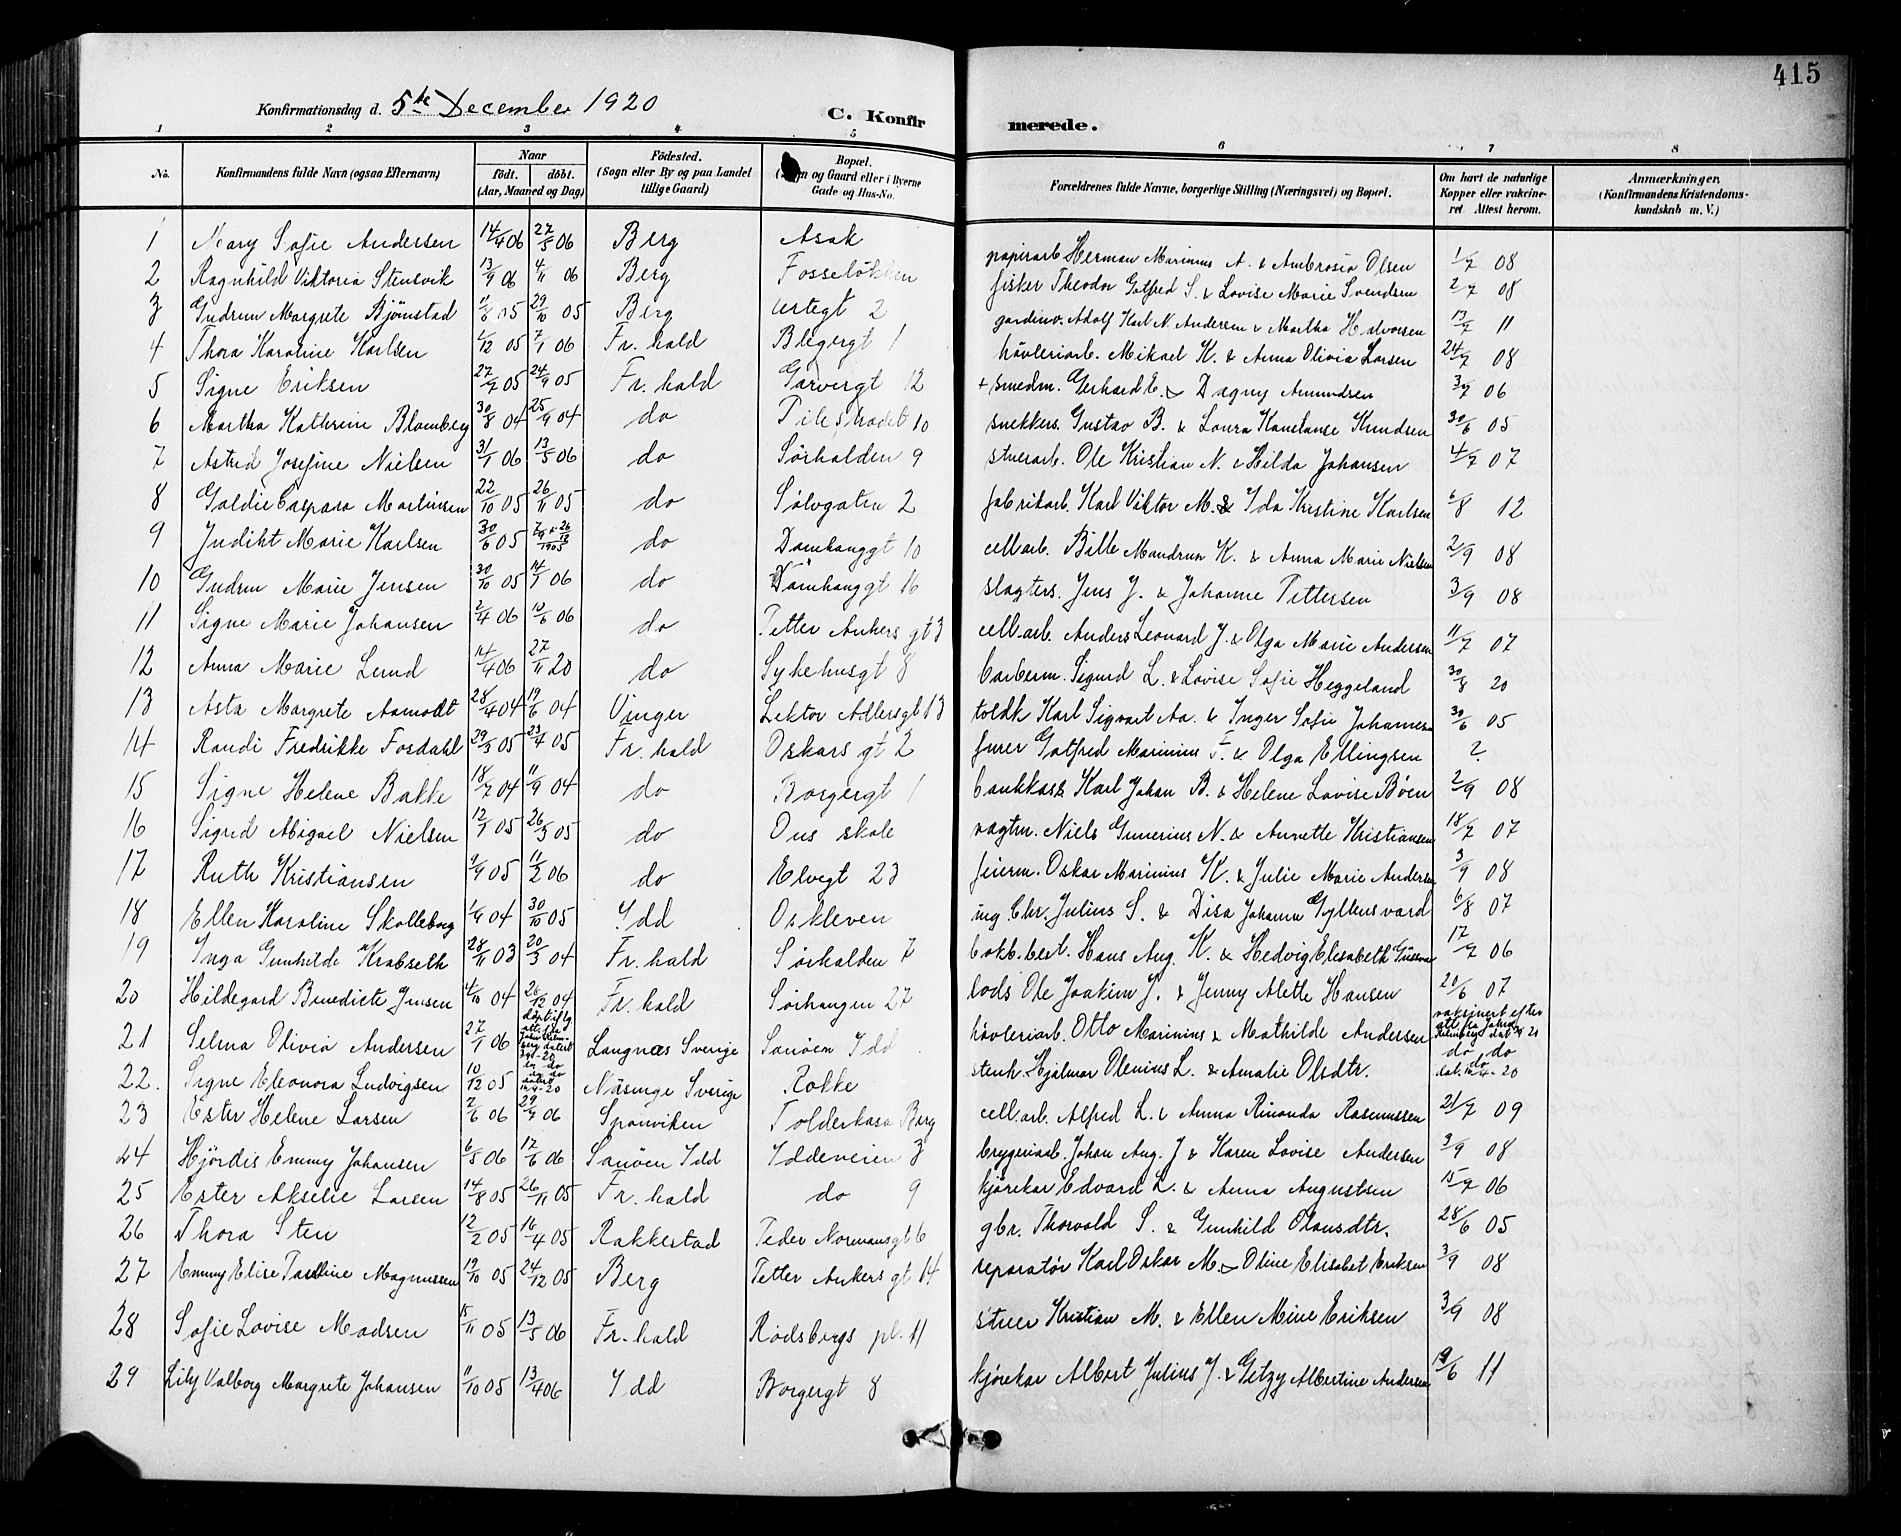 415
Konfirmationsdag d. 5te December 1920
C. Konfirmerede.
1 2 3 4 5 6 7 8
No. Konfirmandens fulde Navn (ogsaa Efternavn) Naar født. døbt. (Aar, Maaned og Dag) Födested. (Sogn eller By og paa Landet tillige Gaard) Bopæl. og Gaard eller i Byerne Gade og Hus-No. Forældrenes fulde Navne, borgerlige Stilling (Næringsvei) og Bopæl. Om havt de naturlige Kopper eller vakcineret Attest herom. Anmærkninger. (Konfirmandens Kristendomskundskab m. V.)
1 Mary Sofie Andersen 14/4 06 27/5 06 Berg Asak papirarb. Herman Marinius A. & Ambrosia Olsen 1/7 08
2 Ragnhild Viktoria Stensvik 13/9 06 4/11 06 Berg Fosseløkken fisker Theodor Gotfred S. & Lovise Marie Svendsen 2/7 08
3 Gudrun Margrete Bjørnstad 05 29/10 05 Berg 2 Adolf Karl N. Andersen & Martha Halvorsen 13/7 11
4 Thora Karoline Karlsen 1/12 05 7/1 06 Fr.hald Blegergt 1 høvleriarb. Mikael K. & Anna Olivia Larsen 24/7 08
5 Signe Eriksen 27/7 05 24/9 05 Fr.hald Garvergt 12 + smedm. Gerhard E. & Dagny Amundsen 3/7 06
6 Martha Kathrine Blomberg 30/8 04 25/9 04 do Pilestrædet 10 snekkers. Gustav B. & Laura Konstanse Knudsen 30/6 05
7 Astrid Josefine Nielsen 31/1 06 13/5 06 do Sørhalden 9 stuerarb. Ole Kristian N. & Hilda Johansen 4/7 07
8 Goldie Caspara Martinsen 22/10 05 26/11 05 do Sølvgaten 2 fabrikarb. Karl Viktor M. & Ida Kristine Karlsen 6/8 12
9 Judikt Marie Karlsen 30/6 05 1905 do Damhauggt 10 cell.arb. Bille Mandrun K. & Anna Marie Nielsen 2/9 08
10 Gudrun Marie Jensen 30/10 05 14/1 06 do Damhauggt 16 slagters. Jens J. & Johanne Pettersen 3/9 08
11 Signe Marie Johansen 2/4 06 10/6 06 do Petter Ankers gt 3 cell.arb. Anders Leonard J. & Olga Marie Andersen 11/7 07
12 Anna Marie Lund 14/4 06 27/11 20 do Sykehusgt 8 barberm. Sigurd L. & Lovise Sofie Heggeland 30/8 20
13 Asta Margrete Aamodt 28/4 04 19/6 04 Vinger Lektor Adlersgt 13 toldk Karl Sigvart Aa. & Inger Sofie Johannesn 30/6 05
14 Randi Fredrikke Fosdahl 29/3 05 23/4 05 Fr.hald Oskars gt 2 furer Gotfred Marinius F. & Olga Ellingsen ?
15 Signe Helene Bakke 18/7 04 11/9 04 do Borgergt 1 bankkass Karl Johan B. & Helene Lovise Bøen 2/9 08
16 Sigrid Abigael Nielsen 12/1 05 26/3 05 do Ous skole vagtm. Niels Gunerius N. & Annette Kristiansen 18/7 07
17 Ruth Kristiansen 9/9 05 11/2 06 do Elvegt 23 feierm. Oskar Marinius K. & Julie Marie Andersen 3/9 08
18 Ellen Karoline Skolleborg 1/9 04 30/10 05 Idd Oskleven ing. Chr. Julius S. & Disa Johanne Gyllensvard 6/8 07
19 Inga Gunhilde Krabseth 28/11 03 20/3 04 Fr.hald Sørhalden 7 bokb.best. Hans Aug. K. & Hedvig Elisabeth 17/7 06
20 Hildegard Benedicte Jensen 4/10 04 26/12 04 Fr.hald Sørhaugen 27 lods Ole Joakim J. & Jenny Alette Hansen 20/6 07
21 Selma Olivia Andersen 27/1 06 døpt iflg att. fra Langnæs Sverige Sanøen Idd høvleriarb. Otto Marinius & Mathilde Andersen vaksinert efter att fra Johan 20
22. Signe Eleonora Ludvigsen 10/12 05 do datert 16/4-20 Näsinge Sverige Rokke stenh. Hjalmar Olenius L. & Amalie Olsdtr. do do dat. 16/4-20
23 Ester Helene Larsen 7/6 06 29/9 06 Sponviken Tolderkasa Berg cell.arb. Alfred L. & Anna Rinonda Rasmussen 21/7 09
24 Hjördis Emmy Johansen 6/5 06 17/6 06 Sanöen Idd Iddeveien 3 bryggeriarb. Johan Aug. J & Karen Lovise Andersen 3/9 08
25 Ester Akselie Larsen 14/8 05 26/11 05 Fr.hald do 9 kjørekar Edvard L. & Anna Augustsen 15/7 06
26 Thora Sten 12/2 05 16/4 05 Rakkestad Peder Normansgt 6 gbr. Thorvald S. & Gunhild Olausdtr. 28/6 05
27 Emmy Elise Pauline Magnussen 19/10 05 24/12 05 Berg Petter Ankers gt 14 reparatør Karl Oskar M. & Oline Elisabet Eriksen 3/9 08
28 Sofie Lovise Madsen 15/11 05 13/5 06 Fr.hald Rødsbergs pl. 11 stuer Kristian M. & Ellen Mine Eriksen 3/9 08
29 Lily Valborg Margrete Johansen 11/10 05 13/4 06 Idd Borgergt 8 kjørekar Albert Julius J. & Getzy Albertine Andersen 19/6 11